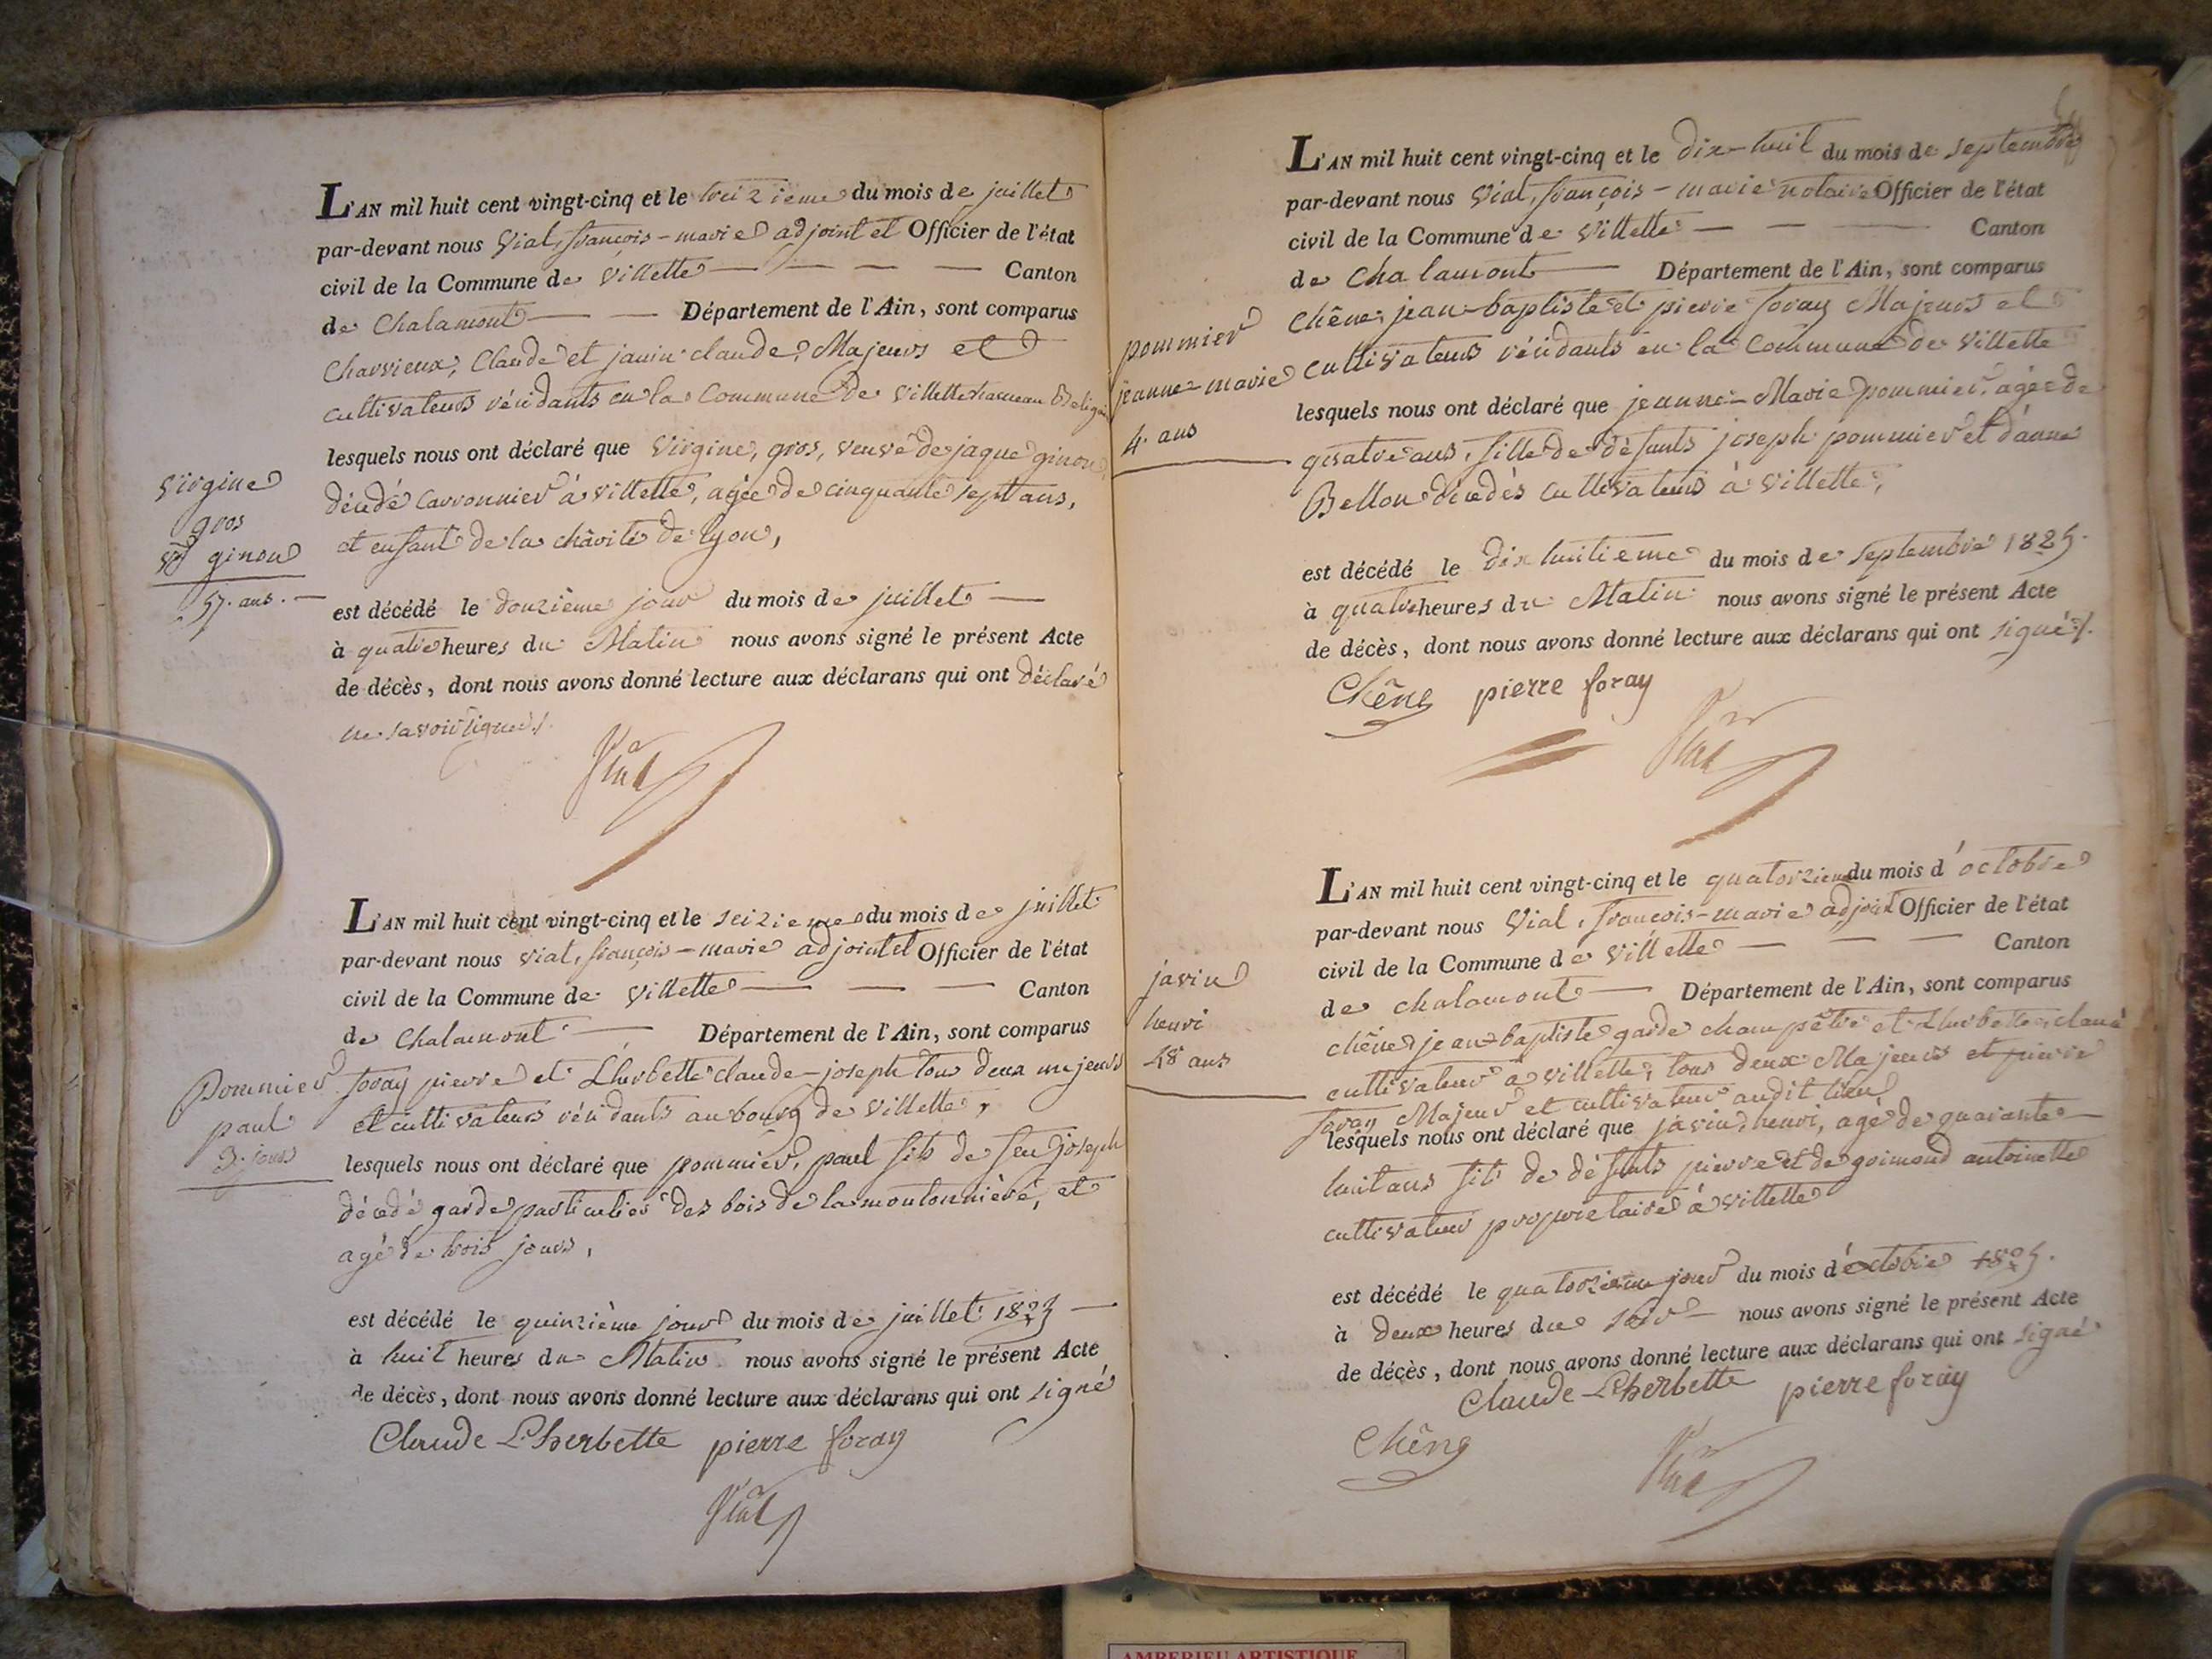 L'AN mil huit cent vingt-cinq et le treizieme du mois de juillet
par-devant nous Vial, françois-marie adjoint et Officier de l'état
civil de la Commune de Villette — — — — Canton
de Chalamont — — Département de l'Ain, sont comparus
Charvieux, Claude et janin claude, Majeurs et
cultivateurs résidants en la Commune de Villette hameau
lesquels nous ont déclaré que Virgine, gros, veuve de jaque ginon
décédé Carronnier à villette, agée de cinquante sept ans,
et enfant de la chârité de lyon,
Virgine
gros
ve ginon
57. ans. —
est décédé le douzième jour du mois de juillet —
à quatre heures du Matin nous avons signé le présent Acte
de décès, dont nous avons donné lecture aux déclarans qui ont déclaré
ne savoir signer./.
Vial
L'AN mil huit cent vingt-cinq et le seizieme du mois de juillet
par-devant nous Vial, françois-marie adjoint et Officier de l'état
civil de la Commune de Villette — — — Canton
de Chalamont — Département de l'Ain, sont comparus
foray pierre et Lherbette claude-joseph tous deux majeurs
et cultivateurs résidants au bourg de Villette,
Pommier
paul
3. jours
lesquels nous ont déclaré que pommier, paul fils de feu joseph
décédé garde particulier des bois de la moutonnière, et
agé de trois jours,
est décédé le quinzième jour du mois de juillet 1825 —
à huit heures du Matin nous avons signé le présent Acte
de décès, dont nous avons donné lecture aux déclarans qui ont signé
Claude Lherbette pierre foray
Vial
L'AN mil huit cent vingt-cinq et le dix-huit du mois de septembre
par-devant nous Vial, françois-marie notaire Officier de l'état
civil de la Commune de Villette — — — Canton
de Chalamont — Département de l'Ain, sont comparus
Chêne, jean-baptiste et pierre foray Majeurs et
cultivateurs résidants en la Commune de Villette
pommier
jeanne-marie
4. ans
lesquels nous ont déclaré que jeanne-Marie pommier agée de
quatre ans, fille de défunts joseph pommier et d'anne
Bellon décédés cultivateurs à Villette,
est décédé le dix huitieme du mois de septembre 1825.
à quatre heures du Matin nous avons signé le présent Acte
de décès, dont nous avons donné lecture aux déclarans qui ont signé./.
Chêne pierre foray
Vial
L'AN mil huit cent vingt-cinq et le quatorzieme du mois d'octobre
par-devant nous Vial, françois-marie adjoint Officier de l'état
civil de la Commune de Villette — — — Canton
de chalamont — Département de l'Ain, sont comparus
chêne jean-baptiste garde champêtre et Lherbette claude
cultivateur à villette, tous deux Majeurs et pierre
foray Majeur et cultivateur audit lieu
javin
henri
48 ans
lesquels nous ont déclaré que javin, henri, agé de quarante
huit ans fils de défunts pierre et de goimond antoinette
cultivateur propriétaire à villette
est décédé le quatorzieme jour du mois d'octobre 1825.
à deux heures du soir — nous avons signé le présent Acte
de décès, dont nous avons donné lecture aux déclarans qui ont signé
Claude Lherbette pierre foray
Chêne
Vial
AMBERIEU ARTISTIQUE